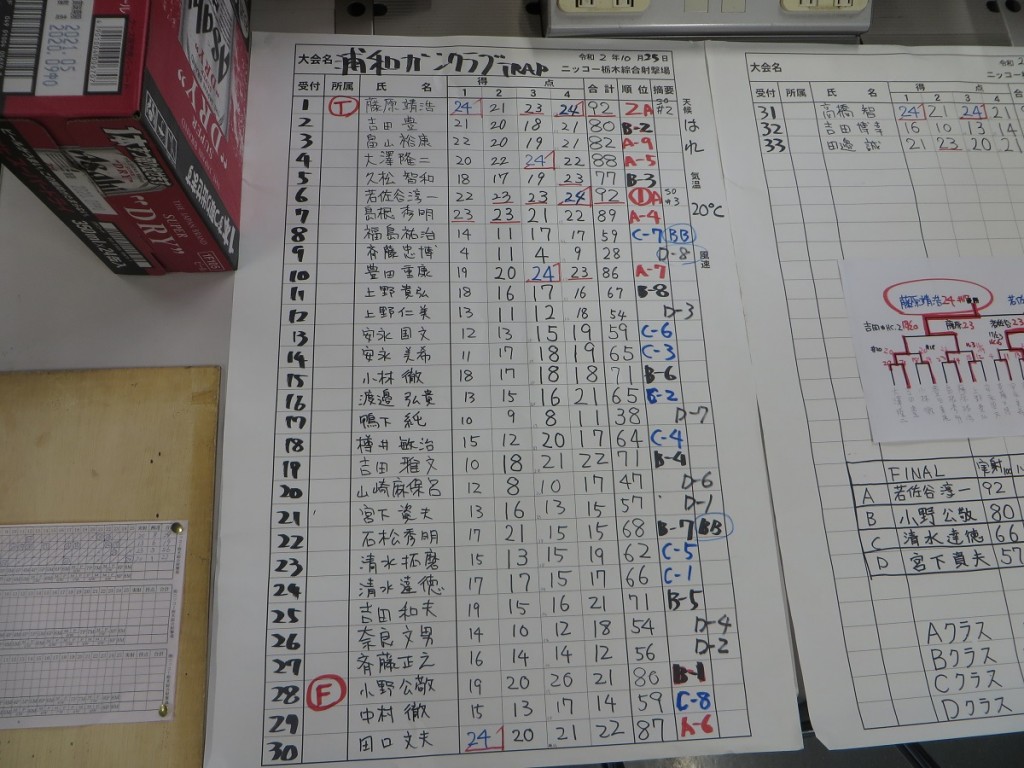 大会名 浦和ガンクラブ TRAP 令和 2 年 10 月 25 日
ニッコー栃木綜合射撃場
受付 所属 氏 名 得 点 合計 順位 摘要
1 2 3 4
1 T 藤原靖浩 24 21 23 24 92 2A
2 吉田 豊 21 20 18 21 80 B-2
3 畠山裕康 22 20 19 21 82 A-9
4 大澤隆二 20 22 24 22 88 A-5
5 久松智和 18 17 19 23 77 B-3
6 若佐谷淳一 22 23 23 24 92 1A
7 島根秀明 23 23 21 22 89 A-4
8 福島祐治 14 11 17 17 59 C-7 BB
9 斉藤忠博 4 11 4 9 28 D-8
10 豊田重康 19 20 24 23 86 A-7
11 上野貴弘 18 16 17 16 67 B-8
12 上野仁美 13 11 12 18 54 D-3
13 安永国文 12 13 15 19 59 C-6
14 安永美希 11 17 18 19 65 C-3
15 小林 徹 18 17 18 18 71 B-6
16 渡邉弘貴 13 15 16 21 65 B-2
17 鴨下 純 10 9 8 11 38 D-7
18 樽井敏治 15 12 20 17 64 C-4
19 吉田雅文 10 18 21 22 71 B-4
20 山崎麻保呂 12 8 10 17 47 D-6
21 宮下資夫 13 16 13 15 57 D-1
22 石松秀明 17 21 15 15 68 B-7 BB
23 清水拓磨 15 13 15 19 62 C-5
24 清水達徳 17 17 15 17 66 C-1
25 吉田和夫 19 15 16 21 71 B-5
26 奈良文男 14 10 12 18 54 D-4
27 斉藤正之 16 14 14 12 56 D-2
28 F 小野公敬 19 20 20 21 80 B-1
29 中村 徹 15 13 17 14 59 C-8
30 田口文夫 24 20 21 22 87 A-6
天候
はれ
気温
20℃
風速
大会名
ニッコー栃木
受付 所属 氏 名 点
1 2 3 4
31 高橋 智 24 21 24 21
32 吉田博幸 16 10 13 14
33 田邉 誠 21 23 20 21
藤原靖浩 24
藤原 23
FINAL 実射
A 若佐谷淳一 92
B 小野公敬 80
C 清水達徳 66
D 宮下貢夫 57
Aクラス
Bクラス
Cクラス
Dクラス
"DRY"
SUPER
"DRY"